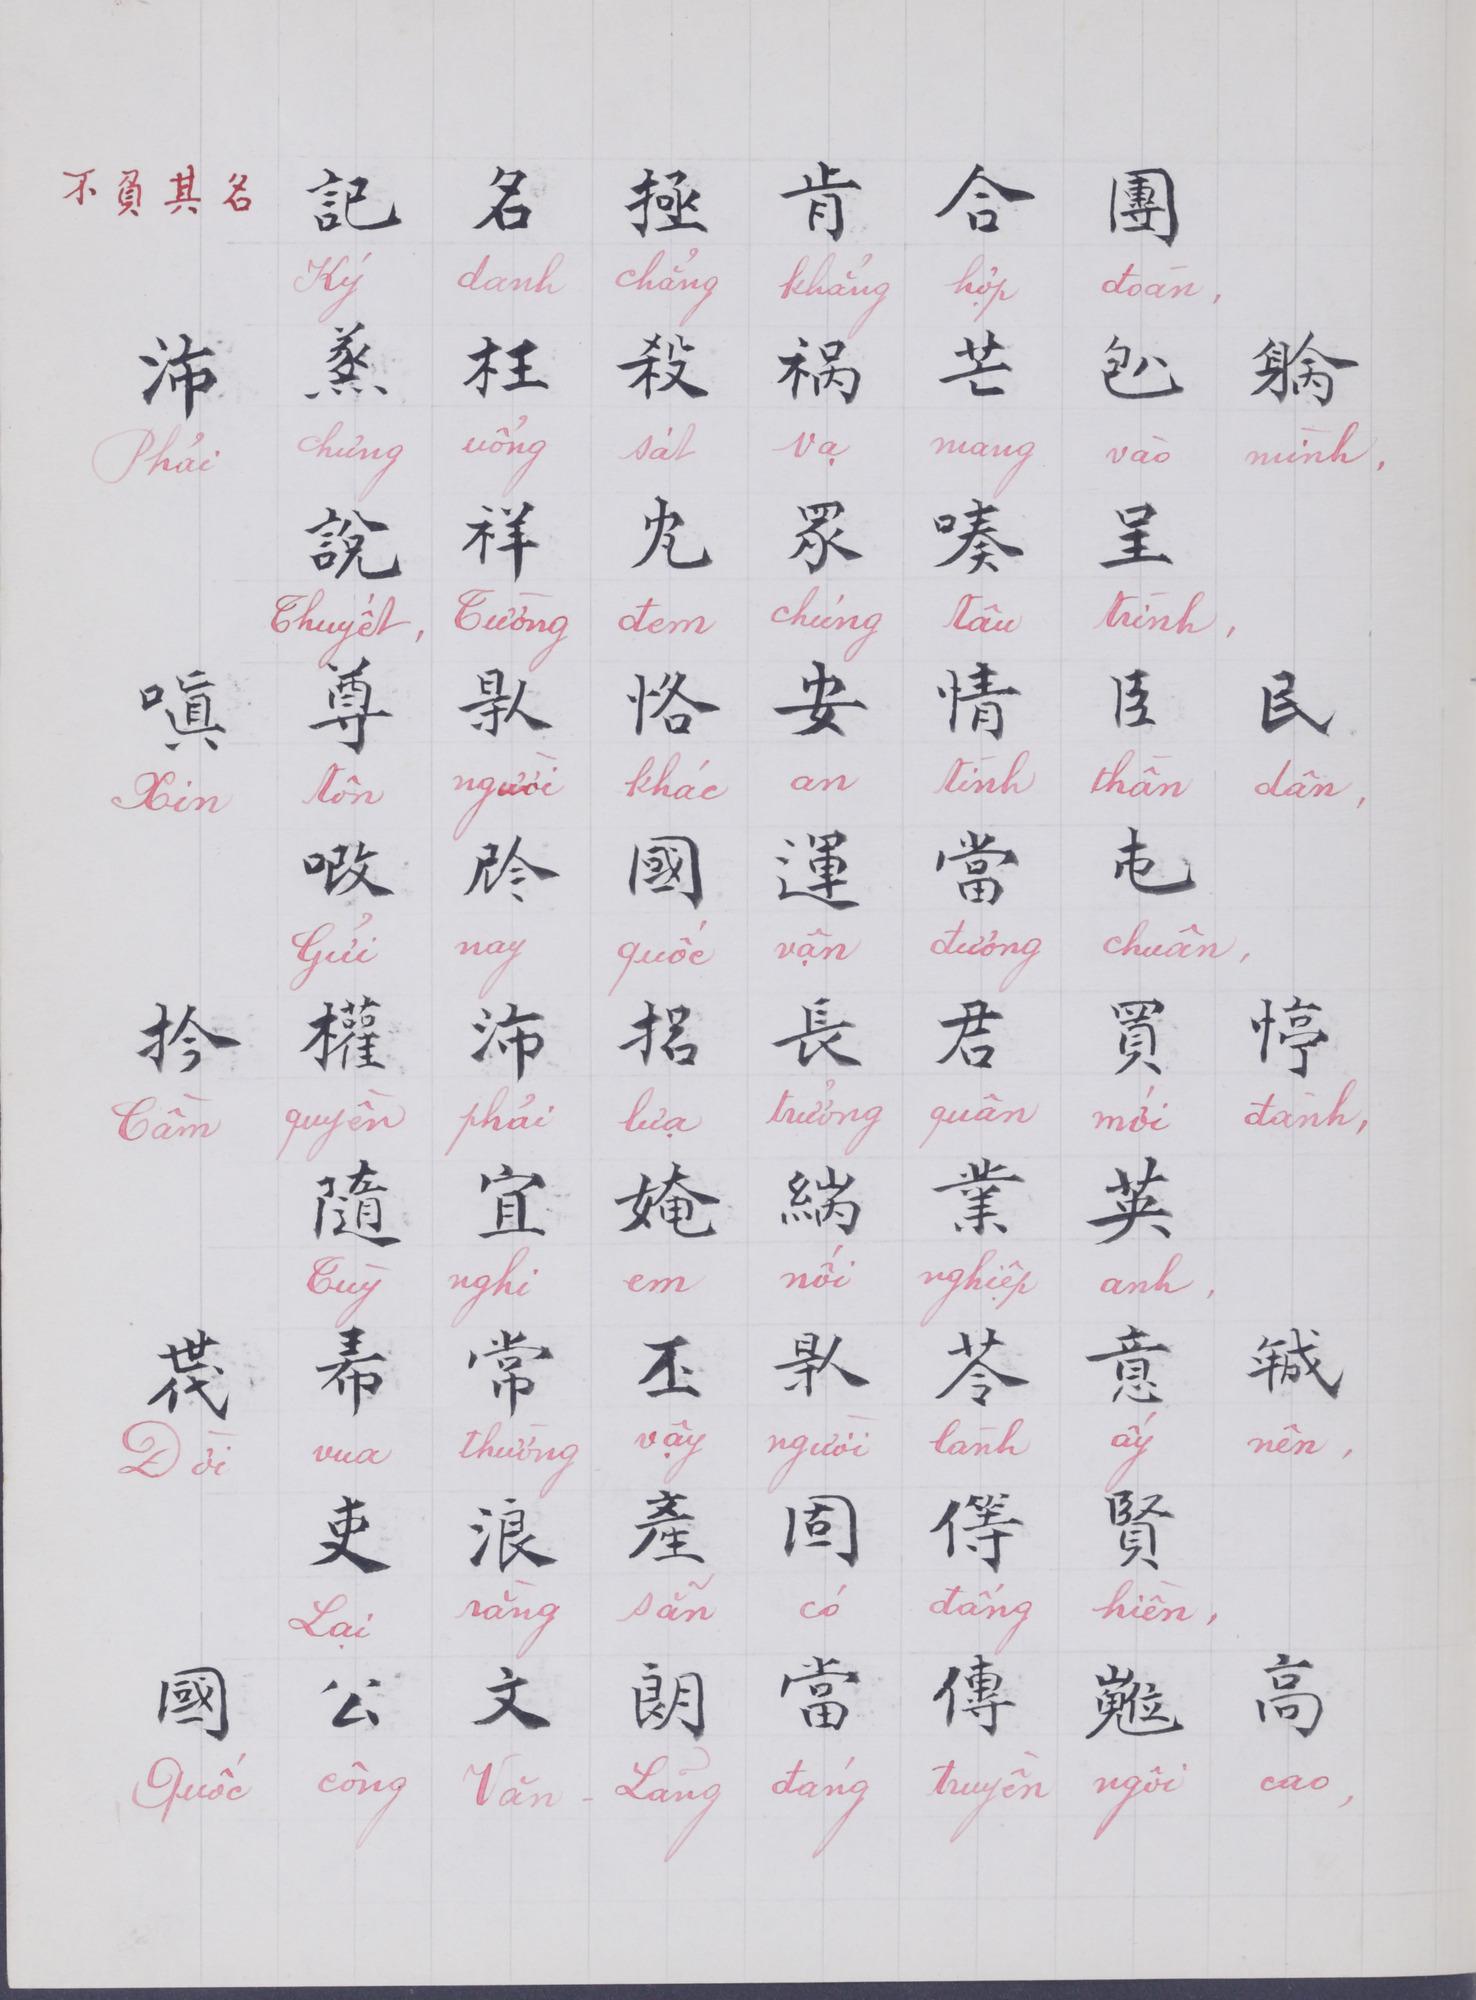 不負其名 記名極肯合團
Ký danh chẳng khẳng hợp đoàn,
沛蒸枉殺祸芒𠓨𨉟
Phải chưng uổng sát vạ mang vào mình,
說祥𫁅眾㗱呈
Thuyết, Tường đem chúng tâu trình,
嗔尊𠊛恪安情臣民
Xin tôn người khác an tình thần dân,
𠳚𫢩國運當屯
Gửi nay quốc vận đương chuân,
扲權沛㨂長君買㝎
Cầm quyền phải lựa trưởng quân mới đành,
隨宜㛪𦀼業英
Tuỳ nghi em nối nghiệp anh,
𠁀𢂜常丕𠊛苓意𢧚
Dời vua thường vậy người lành ấy nên,
吏浪產固㒷賢
Lại rằng sẵn có đấng hiền,
國公文朗當傳𡾵高
Quốc công Văn-Lãng đáng truyền ngôi cao,